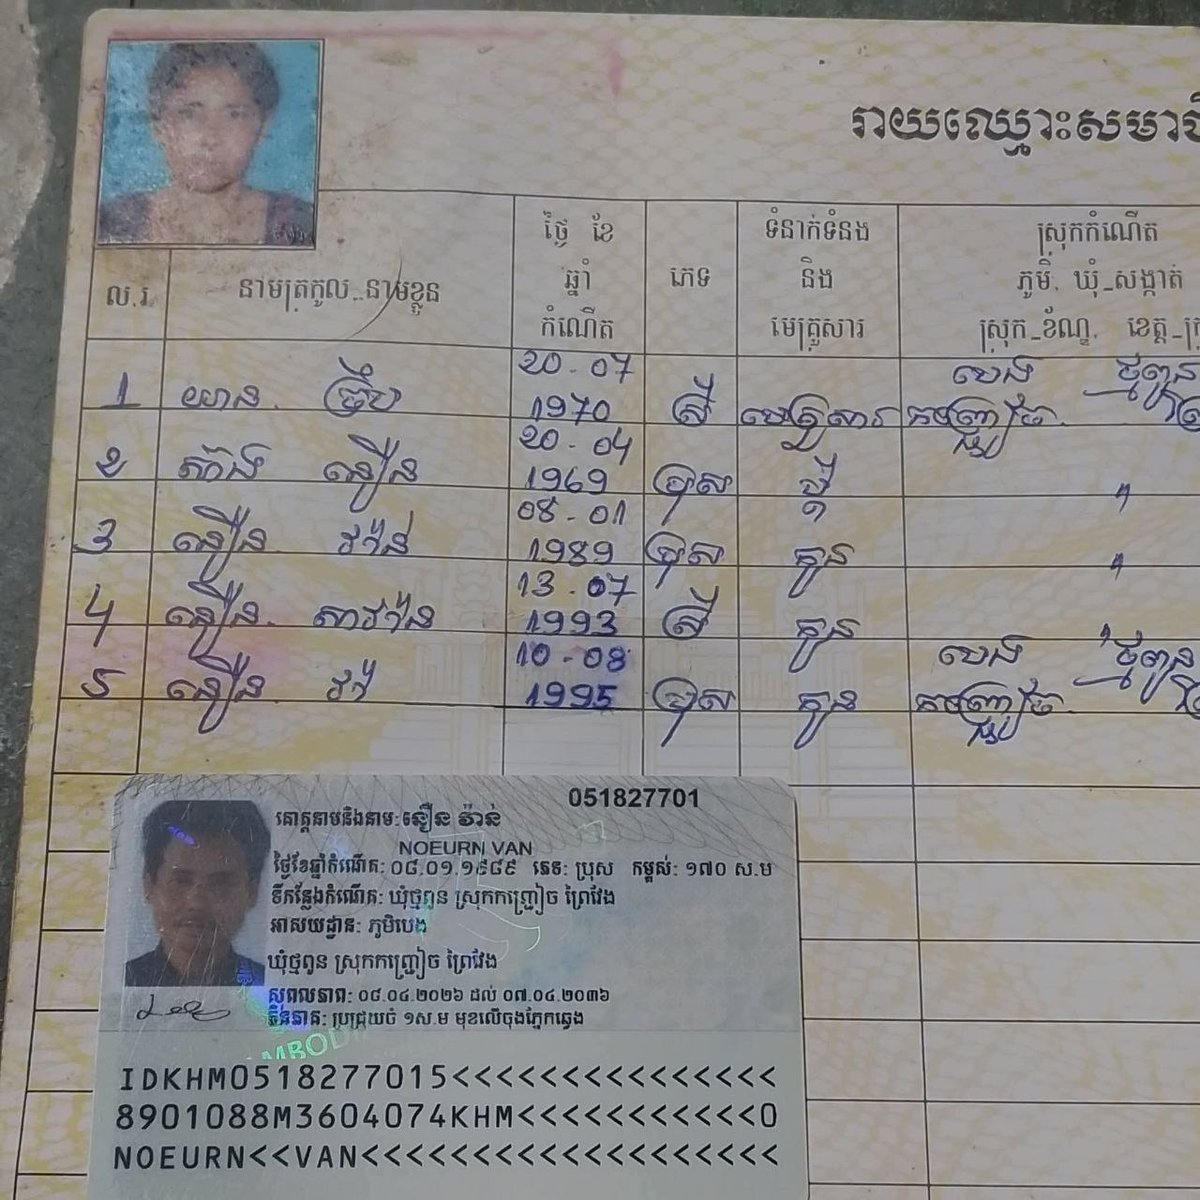 រាយឈ្មោះសមាជិ
ល.រ. នាមត្រកូល_នាមខ្លួន ថ្ងៃ ខែ ឆ្នាំ កំណើត ភេទ ទំនាក់ទំនង និង មេគ្រួសារ ស្រុកកំណើត ភូមិ. ឃុំ_សង្កាត់ ស្រុក_ខ័ណ្ឌ. ខេត្ត_ក្រុ
1 យាន ទ្រឹប 20-07 1970 ស្រី មេគ្រួសារ បេង ថ្មពូន កញ្ជ្រៀច
2 ស៊ាង នឿន 20-04 1969 ប្រុស ប្តី "
3 នឿន វ៉ាន់ 08-01 1989 ប្រុស កូន "
4 នឿន សាវ៉ាន 13-07 1993 ស្រី កូន "
5 នឿន វ៉ា 10-08 1995 ប្រុស កូន បេង ថ្មពូន កញ្ជ្រៀច
051827701
គោត្តនាមនិងនាម: នឿន វ៉ាន់
NOEURN VAN
ថ្ងៃខែឆ្នាំកំណើត: ០៨.០១.១៩៨៩ ភេទ: ប្រុស កម្ពស់: ១៧០ ស.ម
ទីកន្លែងកំណើត: ឃុំថ្មពូន ស្រុកកញ្ជ្រៀច ព្រៃវែង
អាសយដ្ឋាន: ភូមិបេង
ឃុំថ្មពូន ស្រុកកញ្ជ្រៀច ព្រៃវែង
សុពលភាព: ០៨.០៤.២០២៦ ដល់ ០៧.០៤.២០៣៦
ភិនភាគ: ប្រជ្រុយចំ ១ស.ម មុខលើចុងភ្នែកឆ្វេង
IDKHM0518277015<<<<<<<<<<<<<<<
8901088M3604074KHM<<<<<<<<<<<0
NOEURN<<VAN<<<<<<<<<<<<<<<<<<<